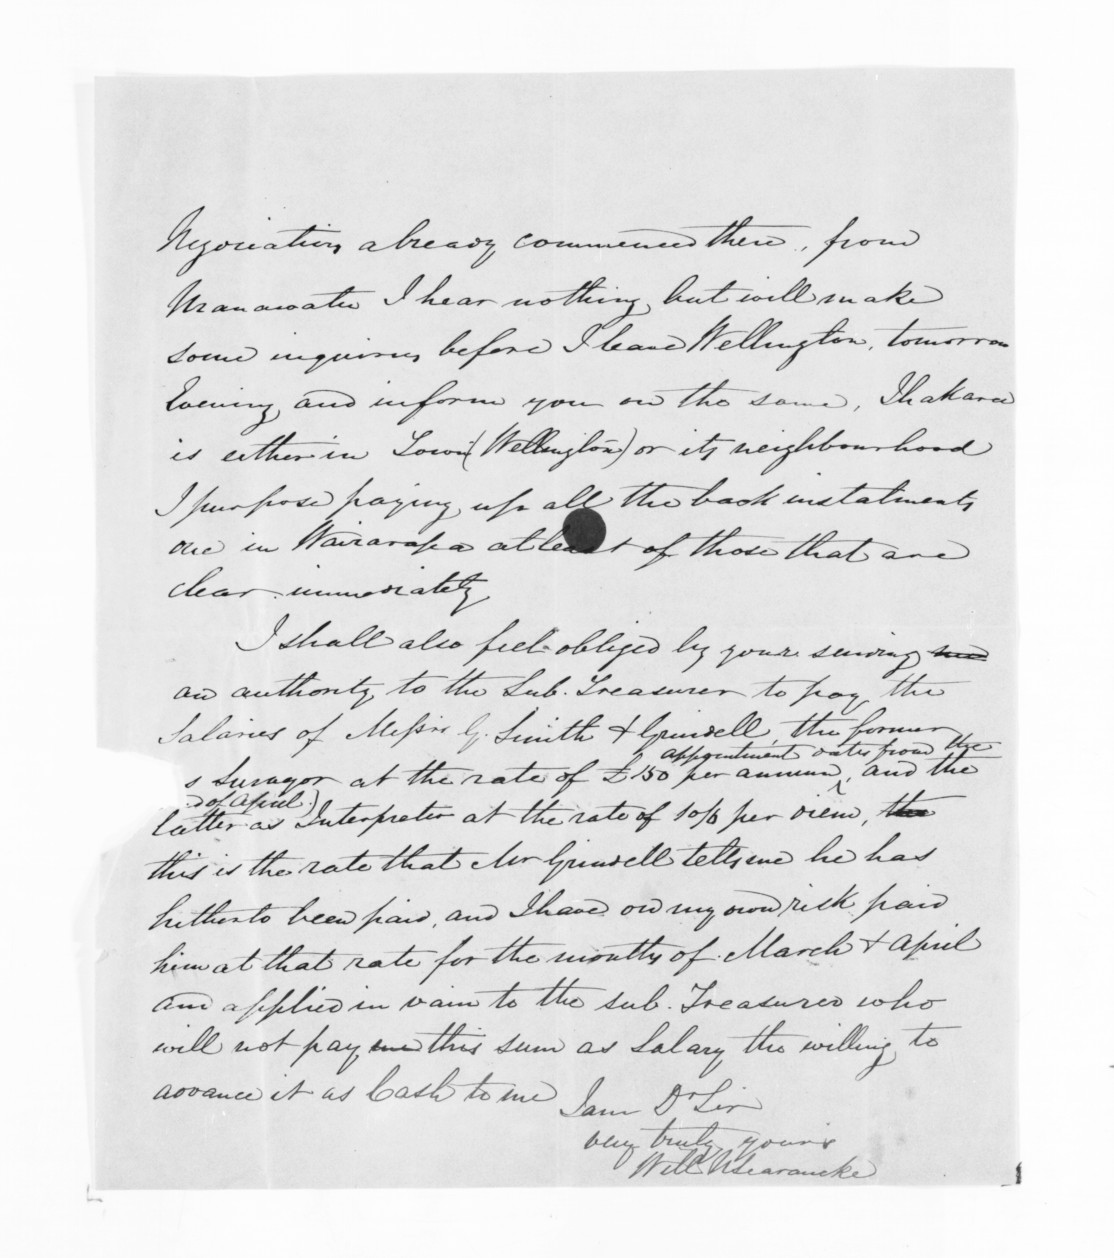 Negociation already commenced there, from
Manawatu I hear nothing, but will make
some inquiries before I leave Wellington, tomorrow
Evening and inform you on the same, Ihakara
is either in Town (Wellington) or its neighbourhood
I purpose paying up all the back instalments
due in Wairarapa at least of those that are
clear immediately
I shall also feel obliged by your sending me
an authority to the Sub. Treasurer to pay the
Salaries of Messrs G. Smith & Grindell, the former
appointment dates from the
s Survayor at the rate of £150 per annum, and the
of April)
latter as Interpreter at the rate of 10/6 per diem, the
this is the rate that Mr Grindell tells me he has
hitherto been paid, and I have on my own risk paid
him at that rate for the months of March & April
and applied in vain to the Sub. Treasurer who
will not pay me this sum as Salary tho willing to
advance it as Cash to me
I am Dr Sir
very truly yours
Will N Searancke